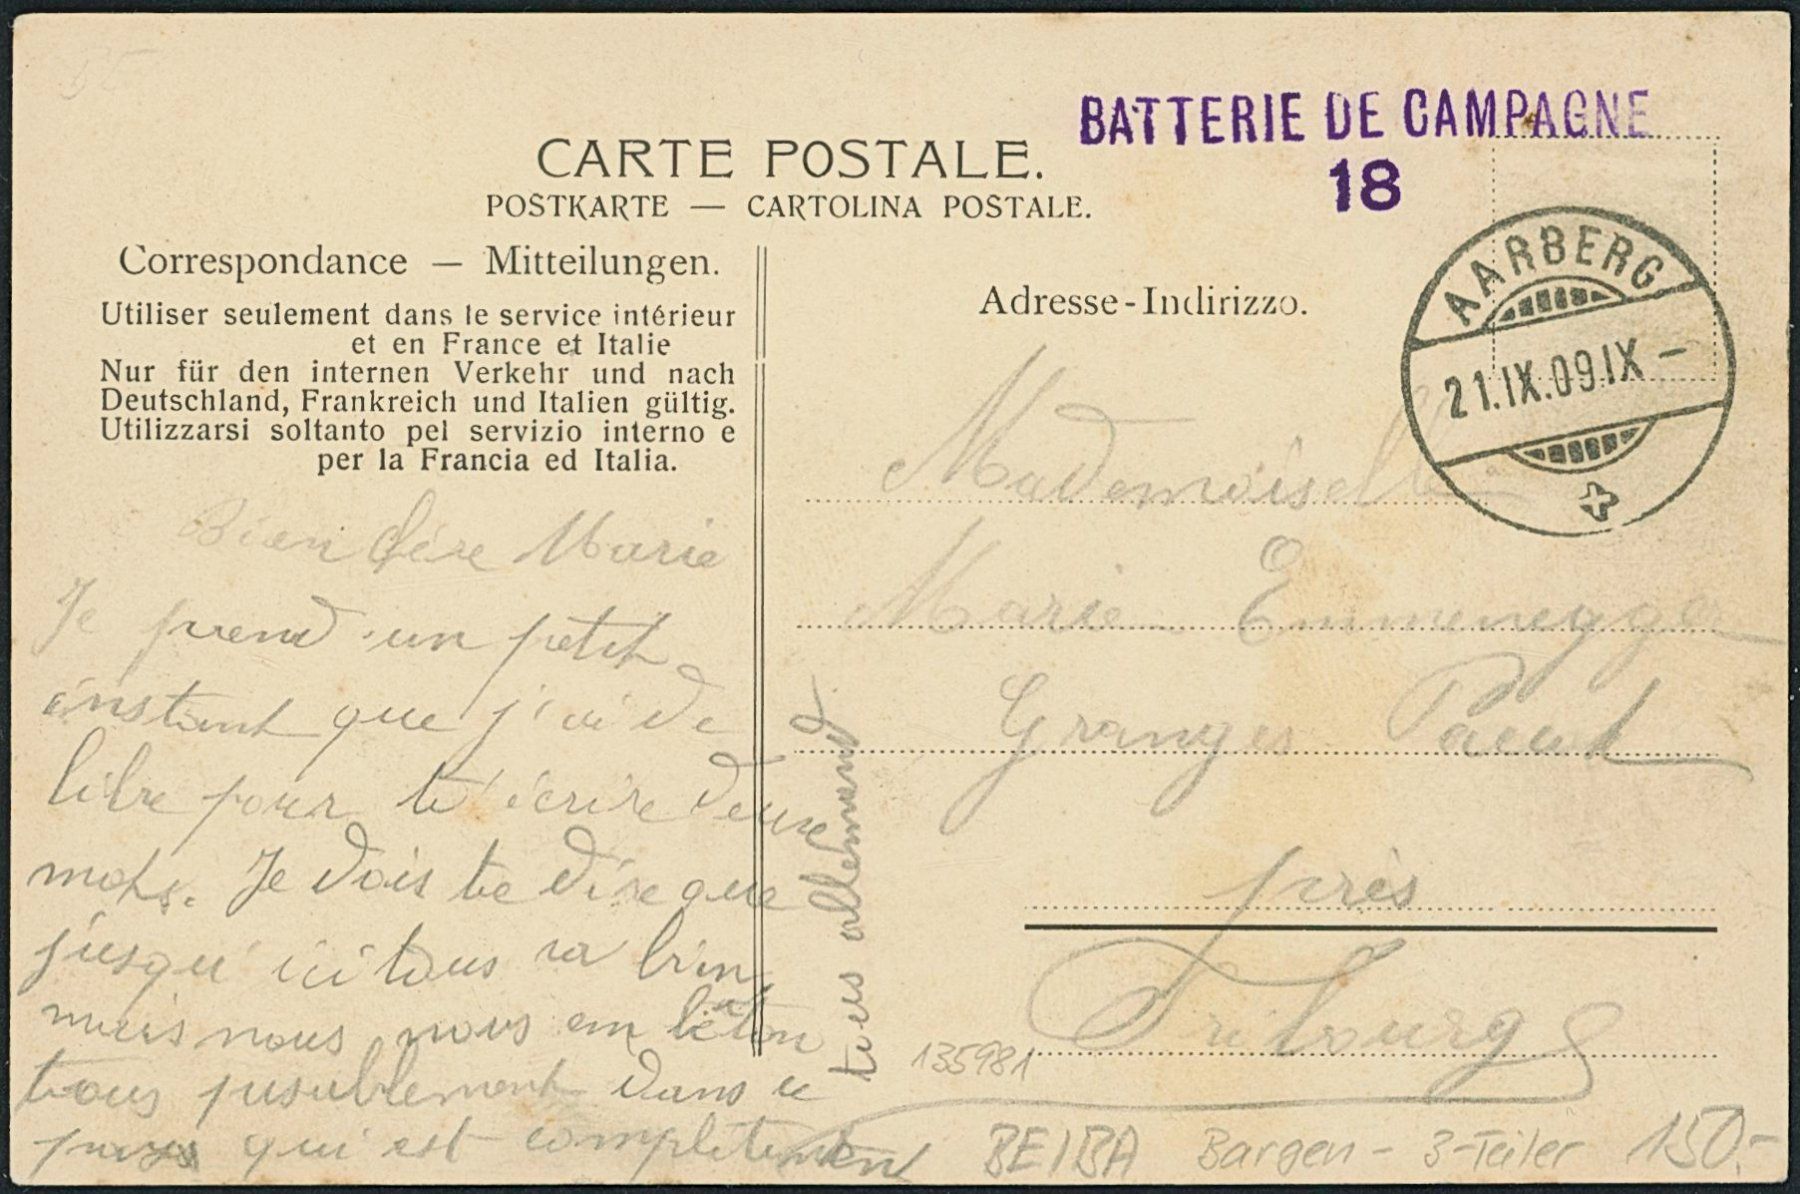 BATTERIE DE CAMPAGNE
18
CARTE POSTALE.
POSTKARTE — CARTOLINA POSTALE.
Correspondance — Mitteilungen.
Utiliser seulement dans le service intérieur
et en France et Italie
Nur für den internen Verkehr und nach
Deutschland, Frankreich und Italien gültig.
Utilizzarsi soltanto pel servizio interno e
per la Francia ed Italia.
Adresse-Indirizzo.
AARBERG
21.IX.09.IX –
Bien chère Marie
Je prend un petit
instant que j'ai de
libre pour t'écrire deux
mots. Je dois te dire que
jusqu'ici tous va bien
mais nous nous
tous dans ce
pays qui est
allemend
Mademoiselle
Marie Emmenegger
Granges Paccot
près
Fribourg
135981
BE/BA Bargen - 3-Teiler 150.-